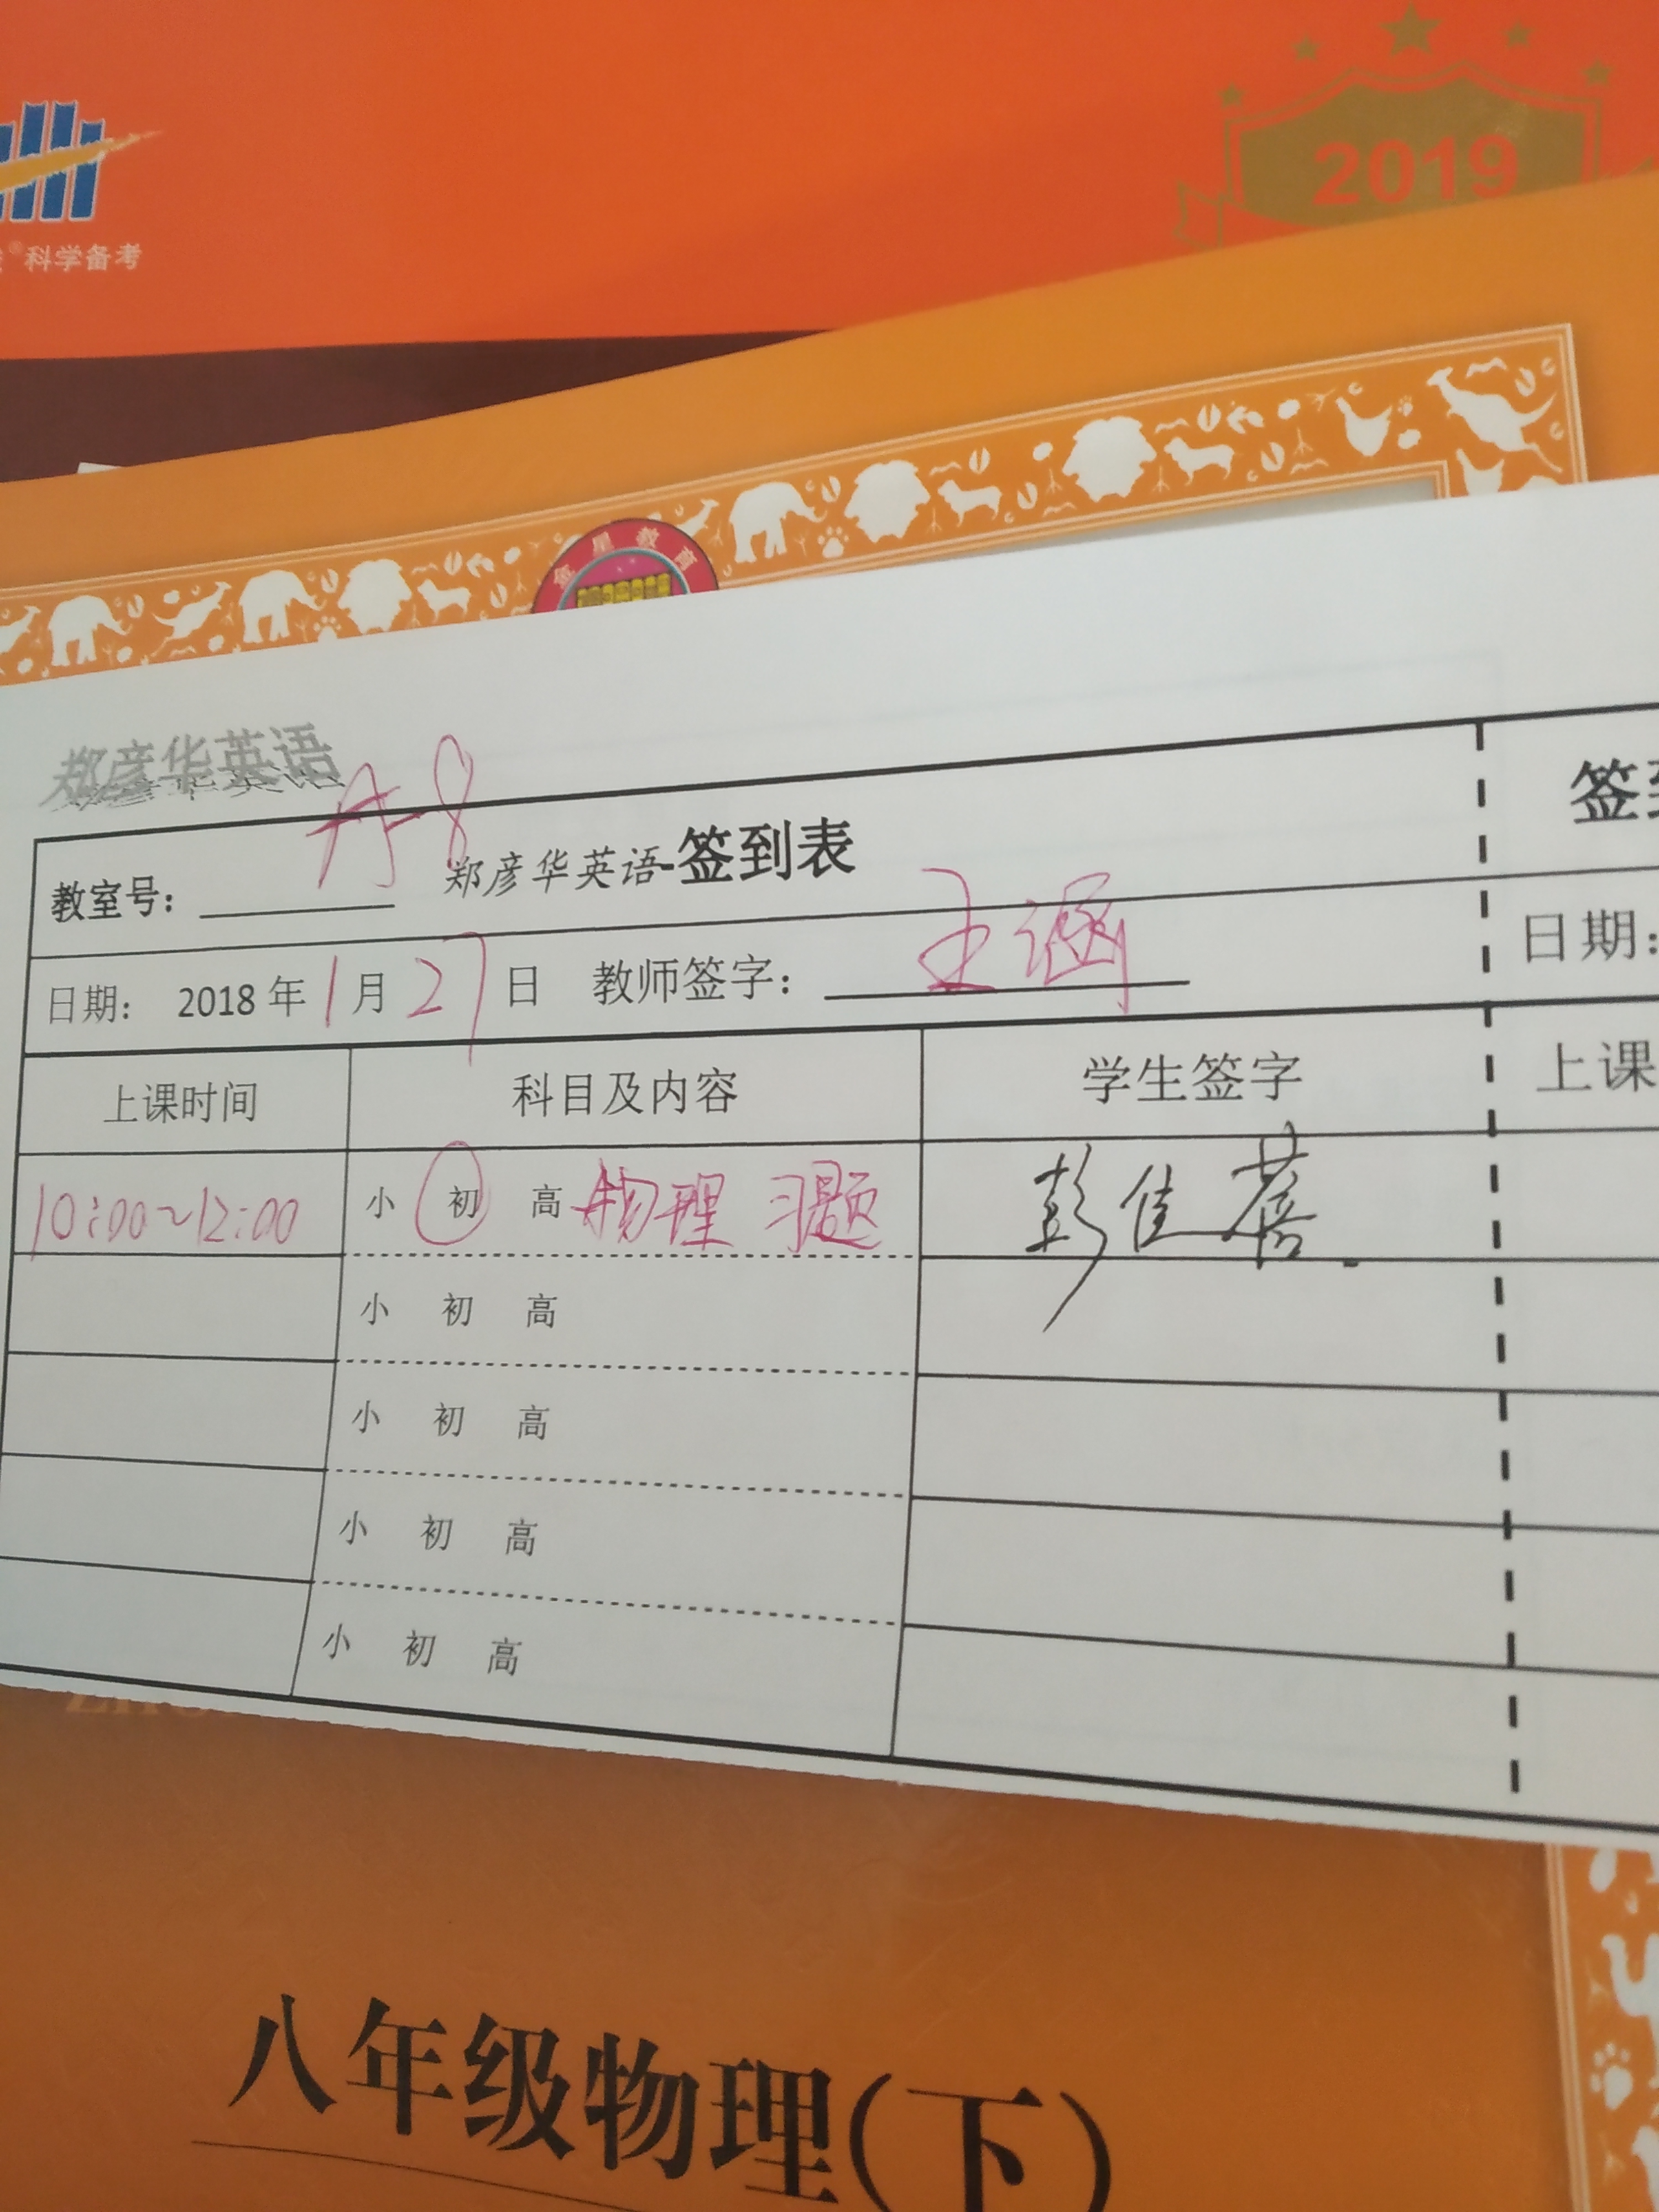 科学备考
2019
金星教育
郑彦华英语
教室号： A-8 郑彦华英语-签到表
日期： 2018年1月27日 教师签字： 王涵
上课时间 科目及内容 学生签字
10:00~12:00 小 初 高 物理 习题 彭佳蓓
小 初 高
小 初 高
小 初 高
小 初 高
签到
日期：
上课
八年级物理(下)